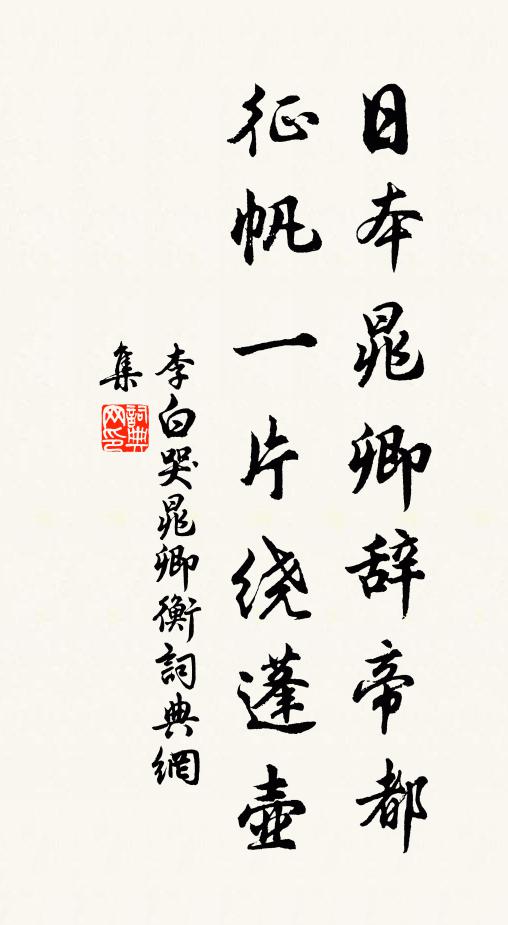 日本晁卿辞帝都
征帆一片绕蓬壶
李白哭晁卿衡詞典網
集
詞典网印